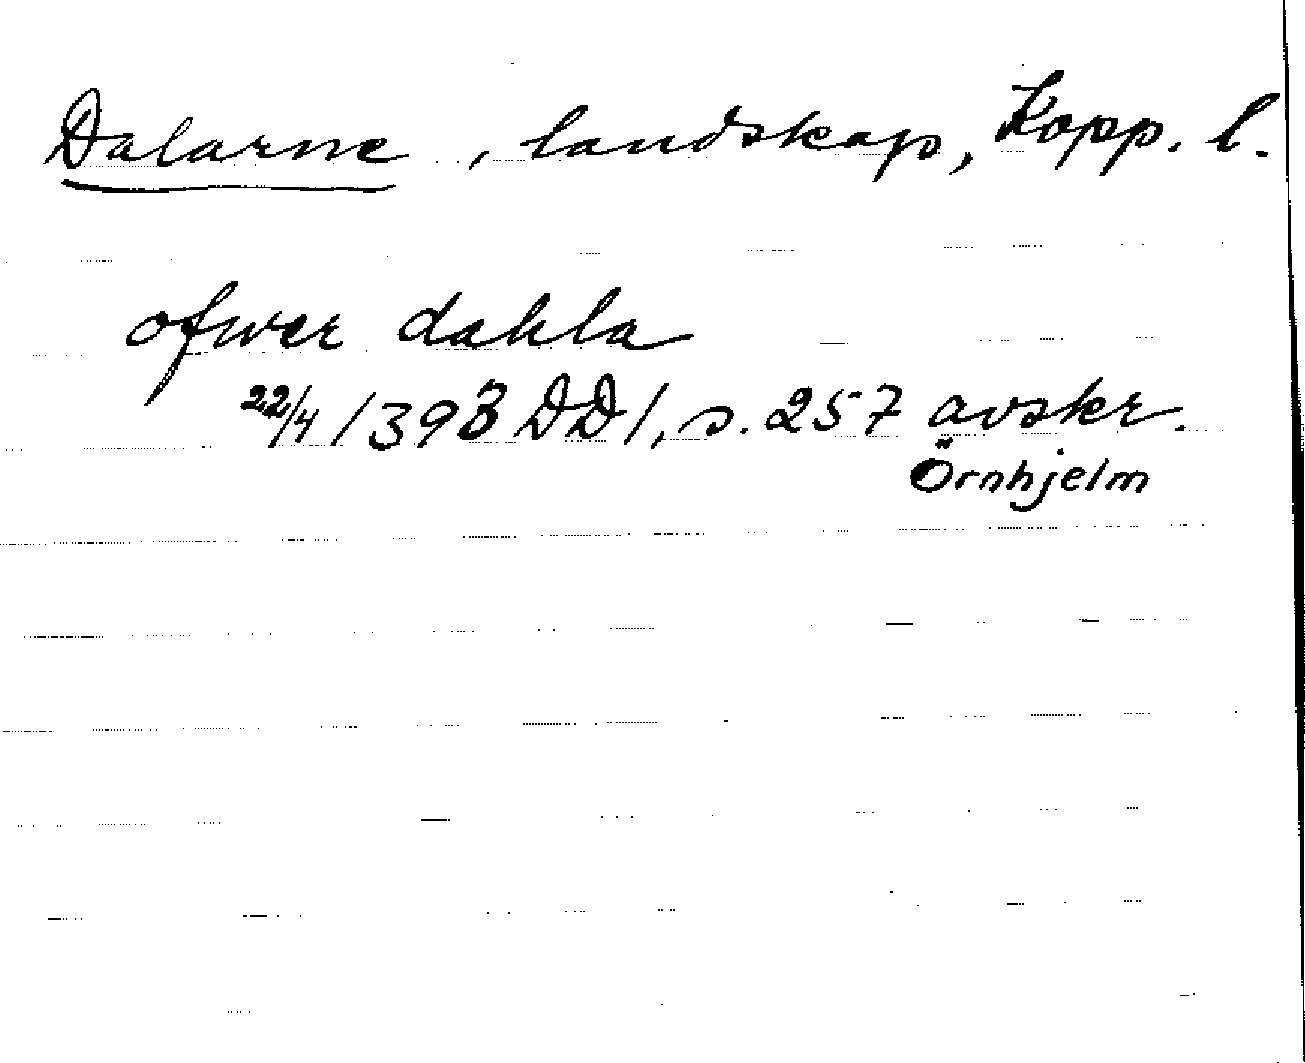 Dalarne, landskap, Kopp. l.
ofwer dahla
22/4 1393 DD 1, s. 257 avskr.
Örnhjelm